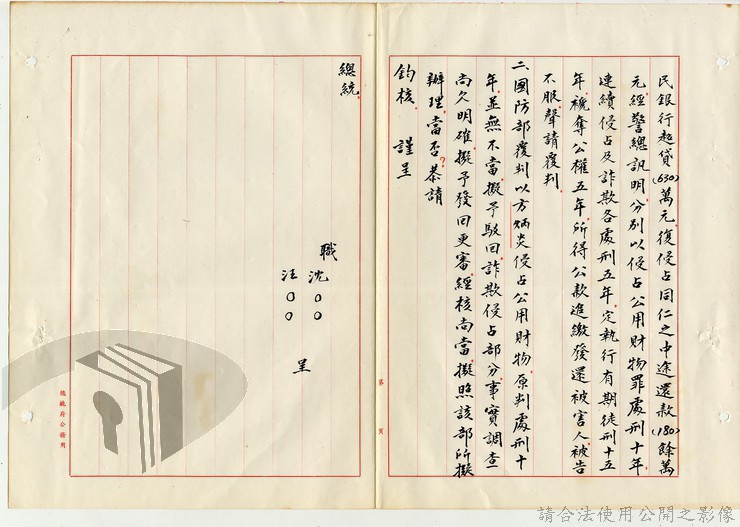 民銀行超貸(630)萬元復侵占同仁之中途還款(180)餘萬
元經警總訊明分別以侵占公用財物罪處刑十年
連續侵占及詐欺各處刑五年定執行有期徒刑十五
年褫奪公權五年所得公款追繳發還被害人被告
不服聲請覆判
二國防部覆判以方炳炎侵占公用財物原判處刑十
年並無不當擬予駁回詐欺侵占部分事實調查
尚欠明確擬予發回更審經核尚當擬照該部所擬
辦理當否?恭請
鈞核 謹呈
總統
職
沈○○
汪○○
呈
第 頁
總統府公務用
請合法使用公開之影像